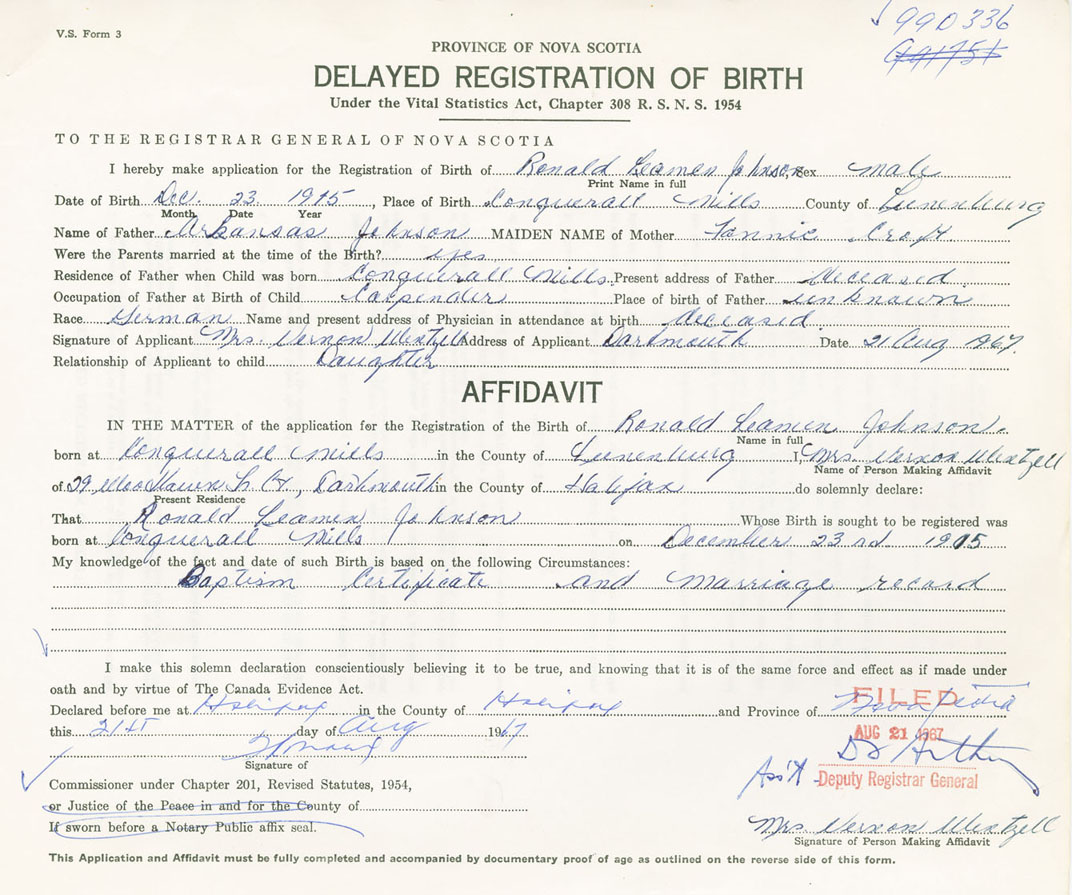 V.S. Form 3
99D336
PROVINCE OF NOVA SCOTIA
DELAYED REGISTRATION OF BIRTH
Under the Vital Statistics Act, Chapter 308 R. S. N. S. 1954
TO THE REGISTRAR GENERAL OF NOVA SCOTIA
I hereby make application for the Registration of Birth of Ronald Leamen Johnson, Sex male
Print Name in full
Date of Birth Dec. 23 1915, Place of Birth Conquerall Mills County of Lunenburg
Month Date Year
Name of Father Arkansas Johnson MAIDEN NAME of Mother Fannie Croft
Were the Parents married at the time of the Birth? yes
Residence of Father when Child was born Conquerall Mills. Present address of Father deceased
Occupation of Father at Birth of Child Carpender Place of birth of Father unknown
Race German Name and present address of Physician in attendance at birth deceased.
Signature of Applicant Mrs. Vernon Wentzell Address of Applicant Dartmouth Date 21 Aug 1967.
Relationship of Applicant to child Daughter
AFFIDAVIT
IN THE MATTER of the application for the Registration of the Birth of Ronald Leamen Johnson.
Name in full
born at Conquerall Mills in the County of Lunenburg I, Mrs Vernon Wentzell
Name of Person Making Affidavit
of 29 Dartmouth in the County of Halifax do solemnly declare:
Present Residence
That Ronald Leamen Johnson Whose Birth is sought to be registered was
born at Conquerall Mills on December 23 rd 1915
My knowledge of the fact and date of such Birth is based on the following Circumstances:
Baptism Certificate and marriage record
I make this solemn declaration conscientiously believing it to be true, and knowing that it is of the same force and effect as if made under
oath and by virtue of The Canada Evidence Act.
Declared before me at Halifax in the County of Halifax and Province of Nova Scotia
FILED
this 21st day of Aug 1967
AUG 21 1967
Signature of
Ass't Deputy Registrar General
Commissioner under Chapter 201, Revised Statutes, 1954,
or Justice of the Peace in and for the County of
If sworn before a Notary Public affix seal.
Mrs Vernon Wentzell
Signature of Person Making Affidavit
This Application and Affidavit must be fully completed and accompanied by documentary proof of age as outlined on the reverse side of this form.